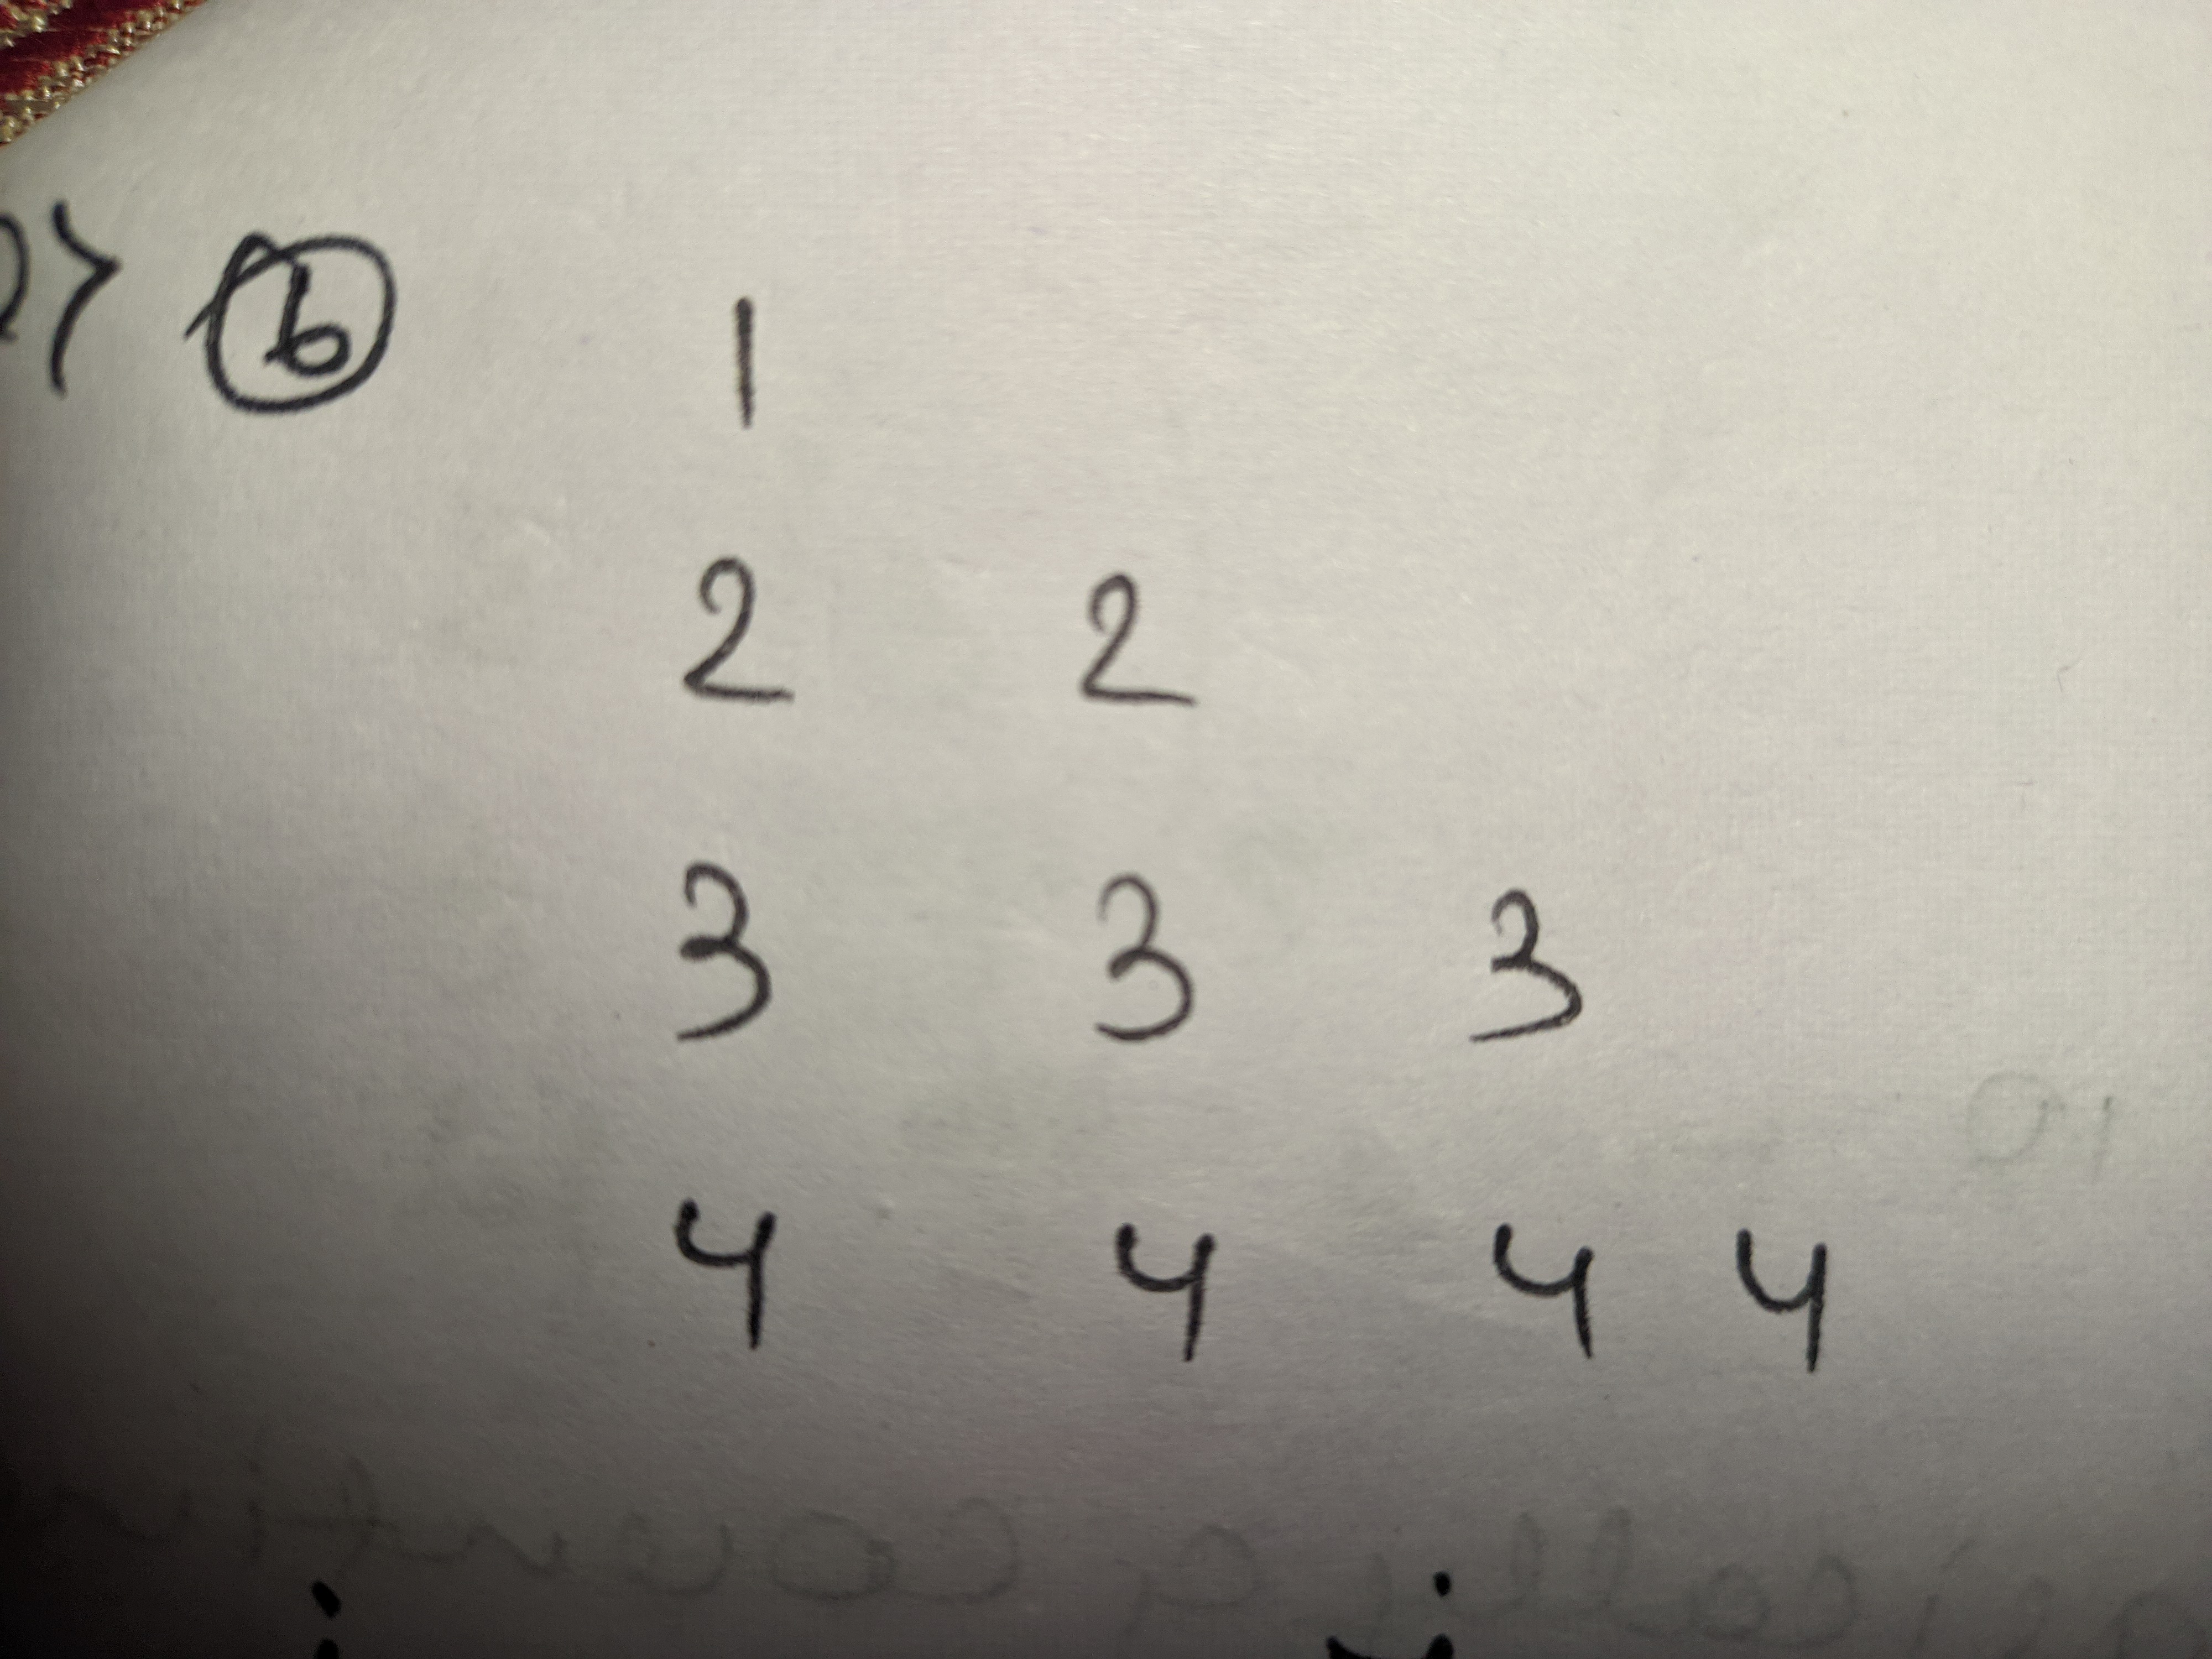 ⓑ 1
2 2
3 3 3
4 4 4 4